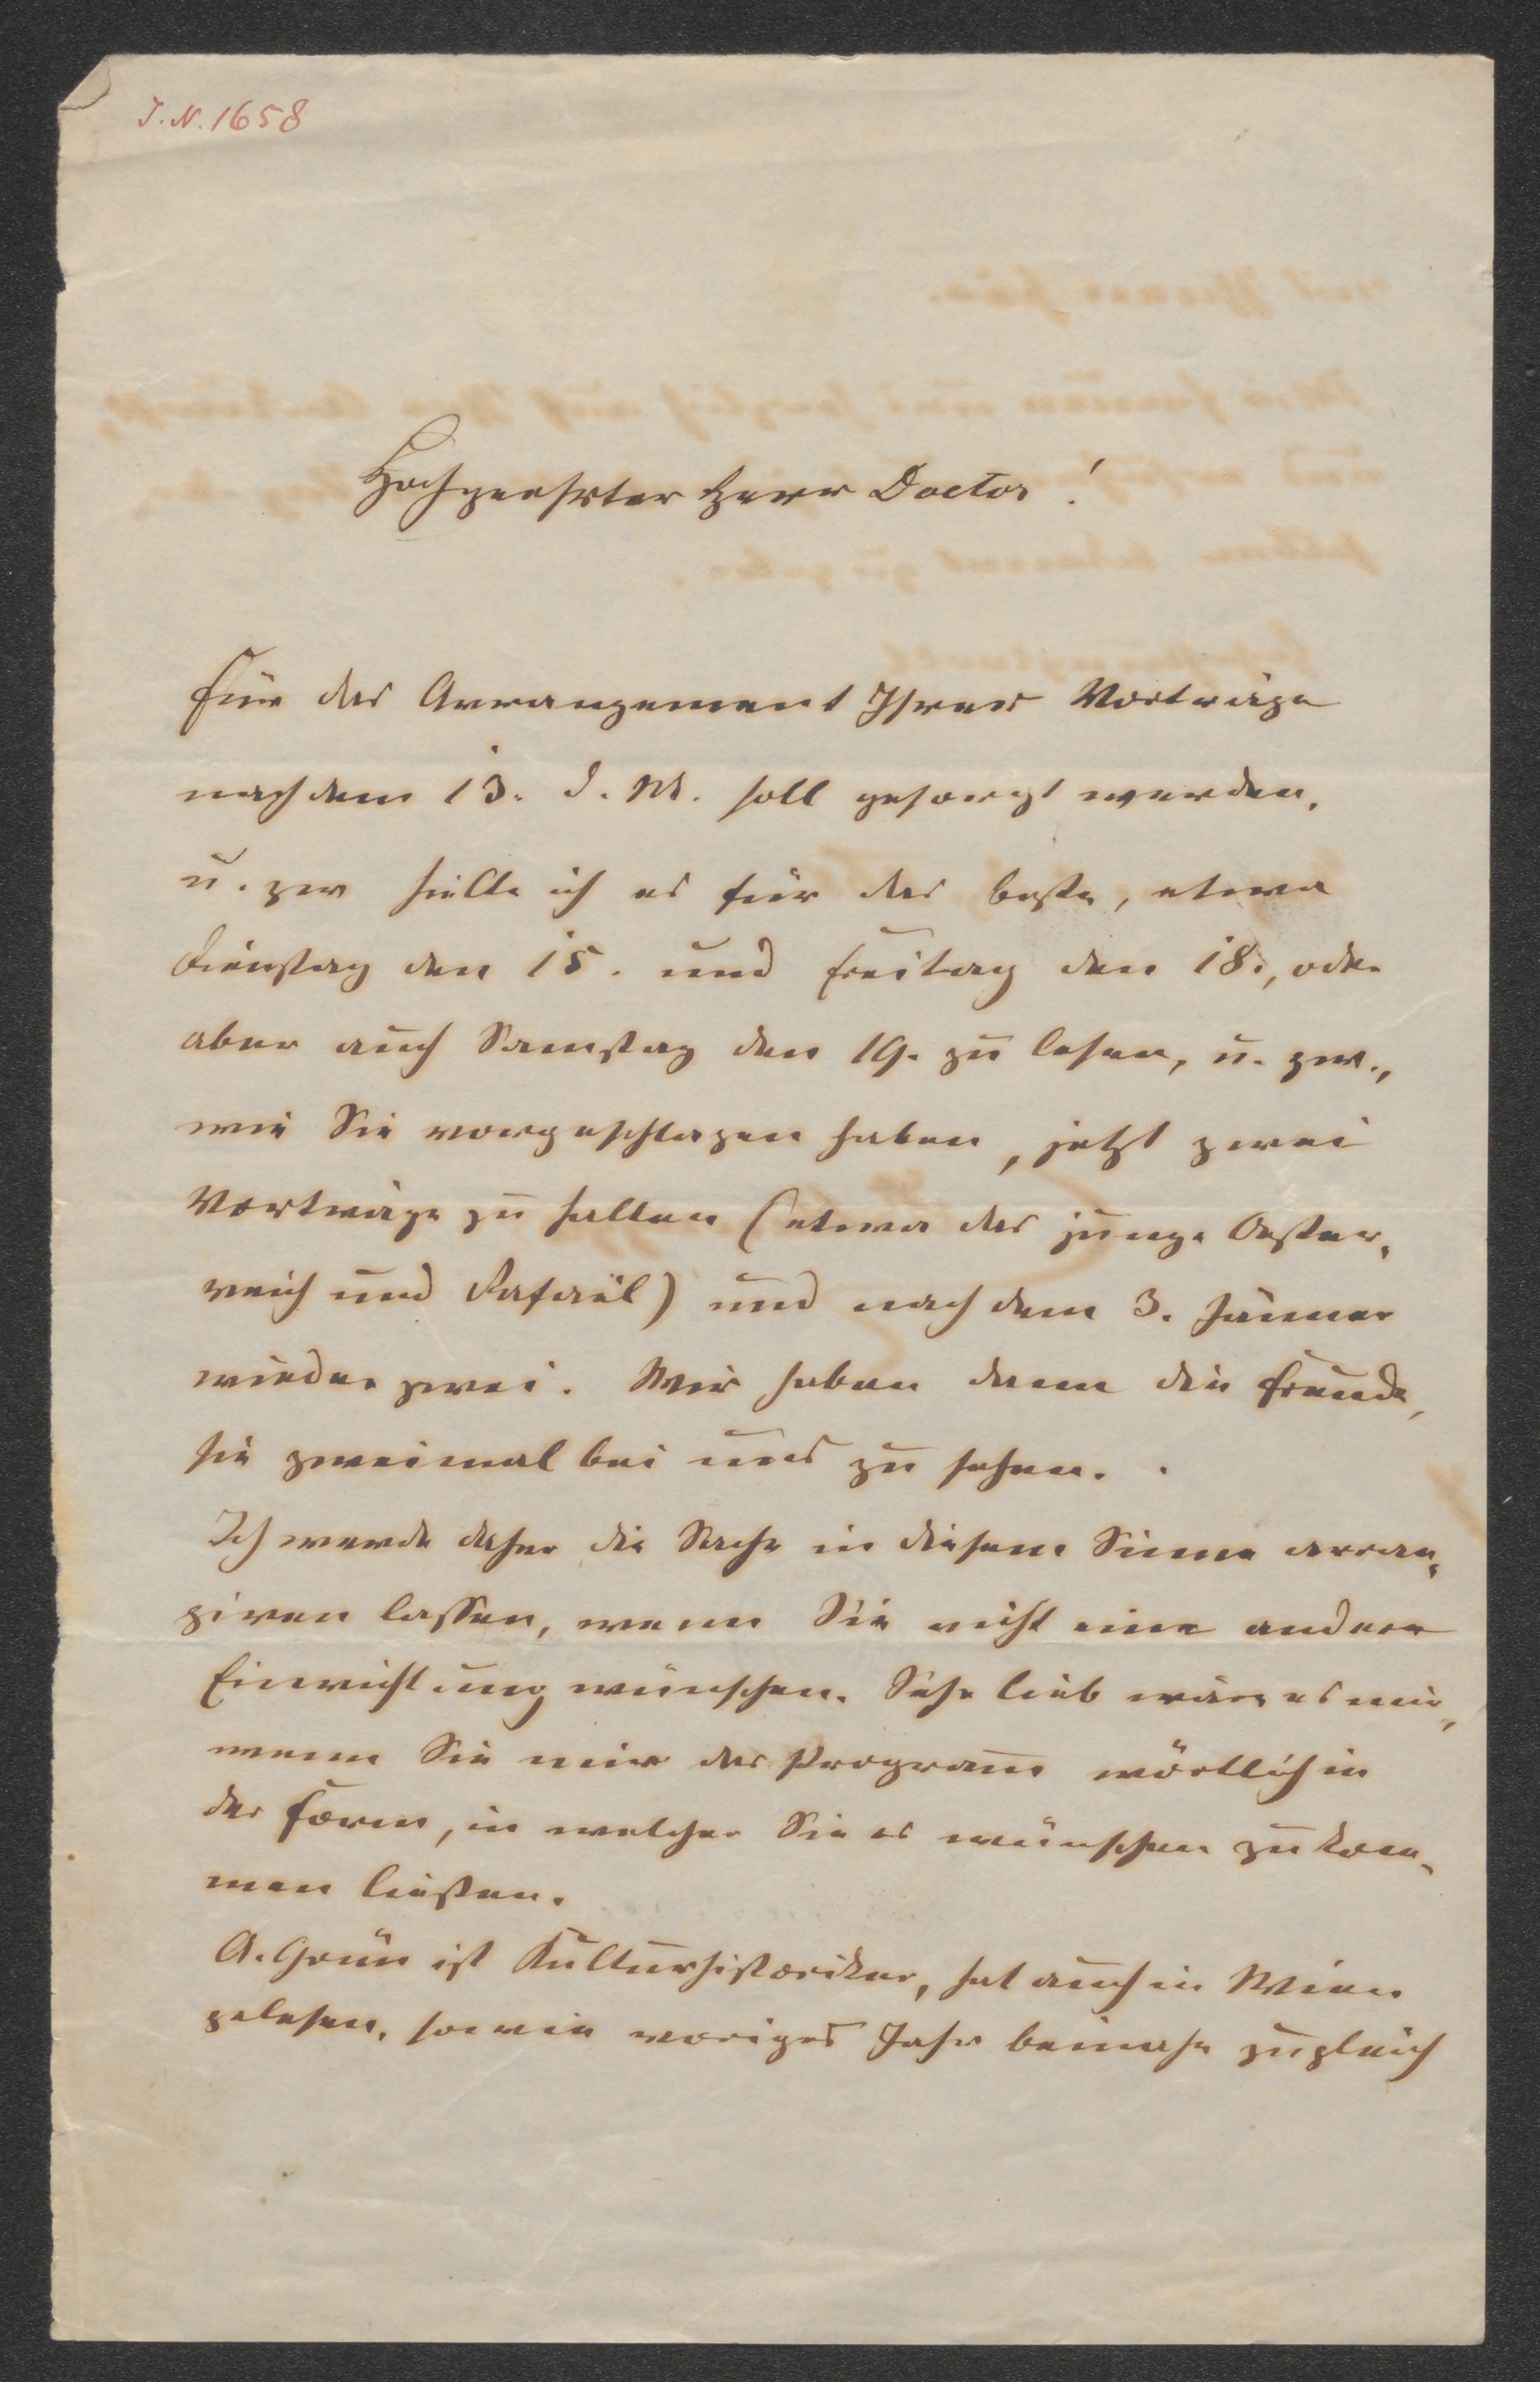 J. N. 1658
Hochgeehrter Herr Doctor!
Für das Arrangement Ihrer Vorträge
nach dem 13. d. M. soll gesorgt werden,
u. zw hielte ich es für das beste, etwa
Dienstag den 15. und Freitag den 18., oder
aber auch Samstag den 19. zu lesen, u. zw.,
wie Sie vorgeschlagen haben, jetzt zwei
Vorträge zu halten (etwa das junge Oester-
reich und Rafaël) und nach dem 3. Jänner
wieder zwei. Wir haben dann die Freude,
sie zweimal bei uns zu sehen.
Ich werde daher die Sache in diesem Sinne arran-
giren lassen, wenn Sie nicht eine andere
Einrichtung wünschen. Sehr lieb wäre es mir,
wenn Sie mir das Program̅ wörtlich in
der Form, in welcher Sie es wünschen zukom-
men ließen.
A. Grün ist Kulturhistoriker, hat auch in Wien
gelesen, sowie voriges Jahr beinahe zugleich